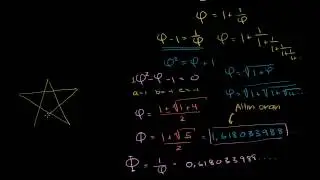 φ = 1 + 1/φ
φ - 1 = 1/φ
φ = 1 + 1/(1 + 1/(1 + 1/(1 + 1/(1 + ...
φ² = φ + 1
φ² - φ - 1 = 0
φ = √(1 + φ)
φ = √(1 + √(1 + √(1 + ...
φ = (1 + √(1 + 4))/2
Altın oran
φ = (1 + √5)/2 = 1,618033988...
Φ = 1/φ = 0,618033988....